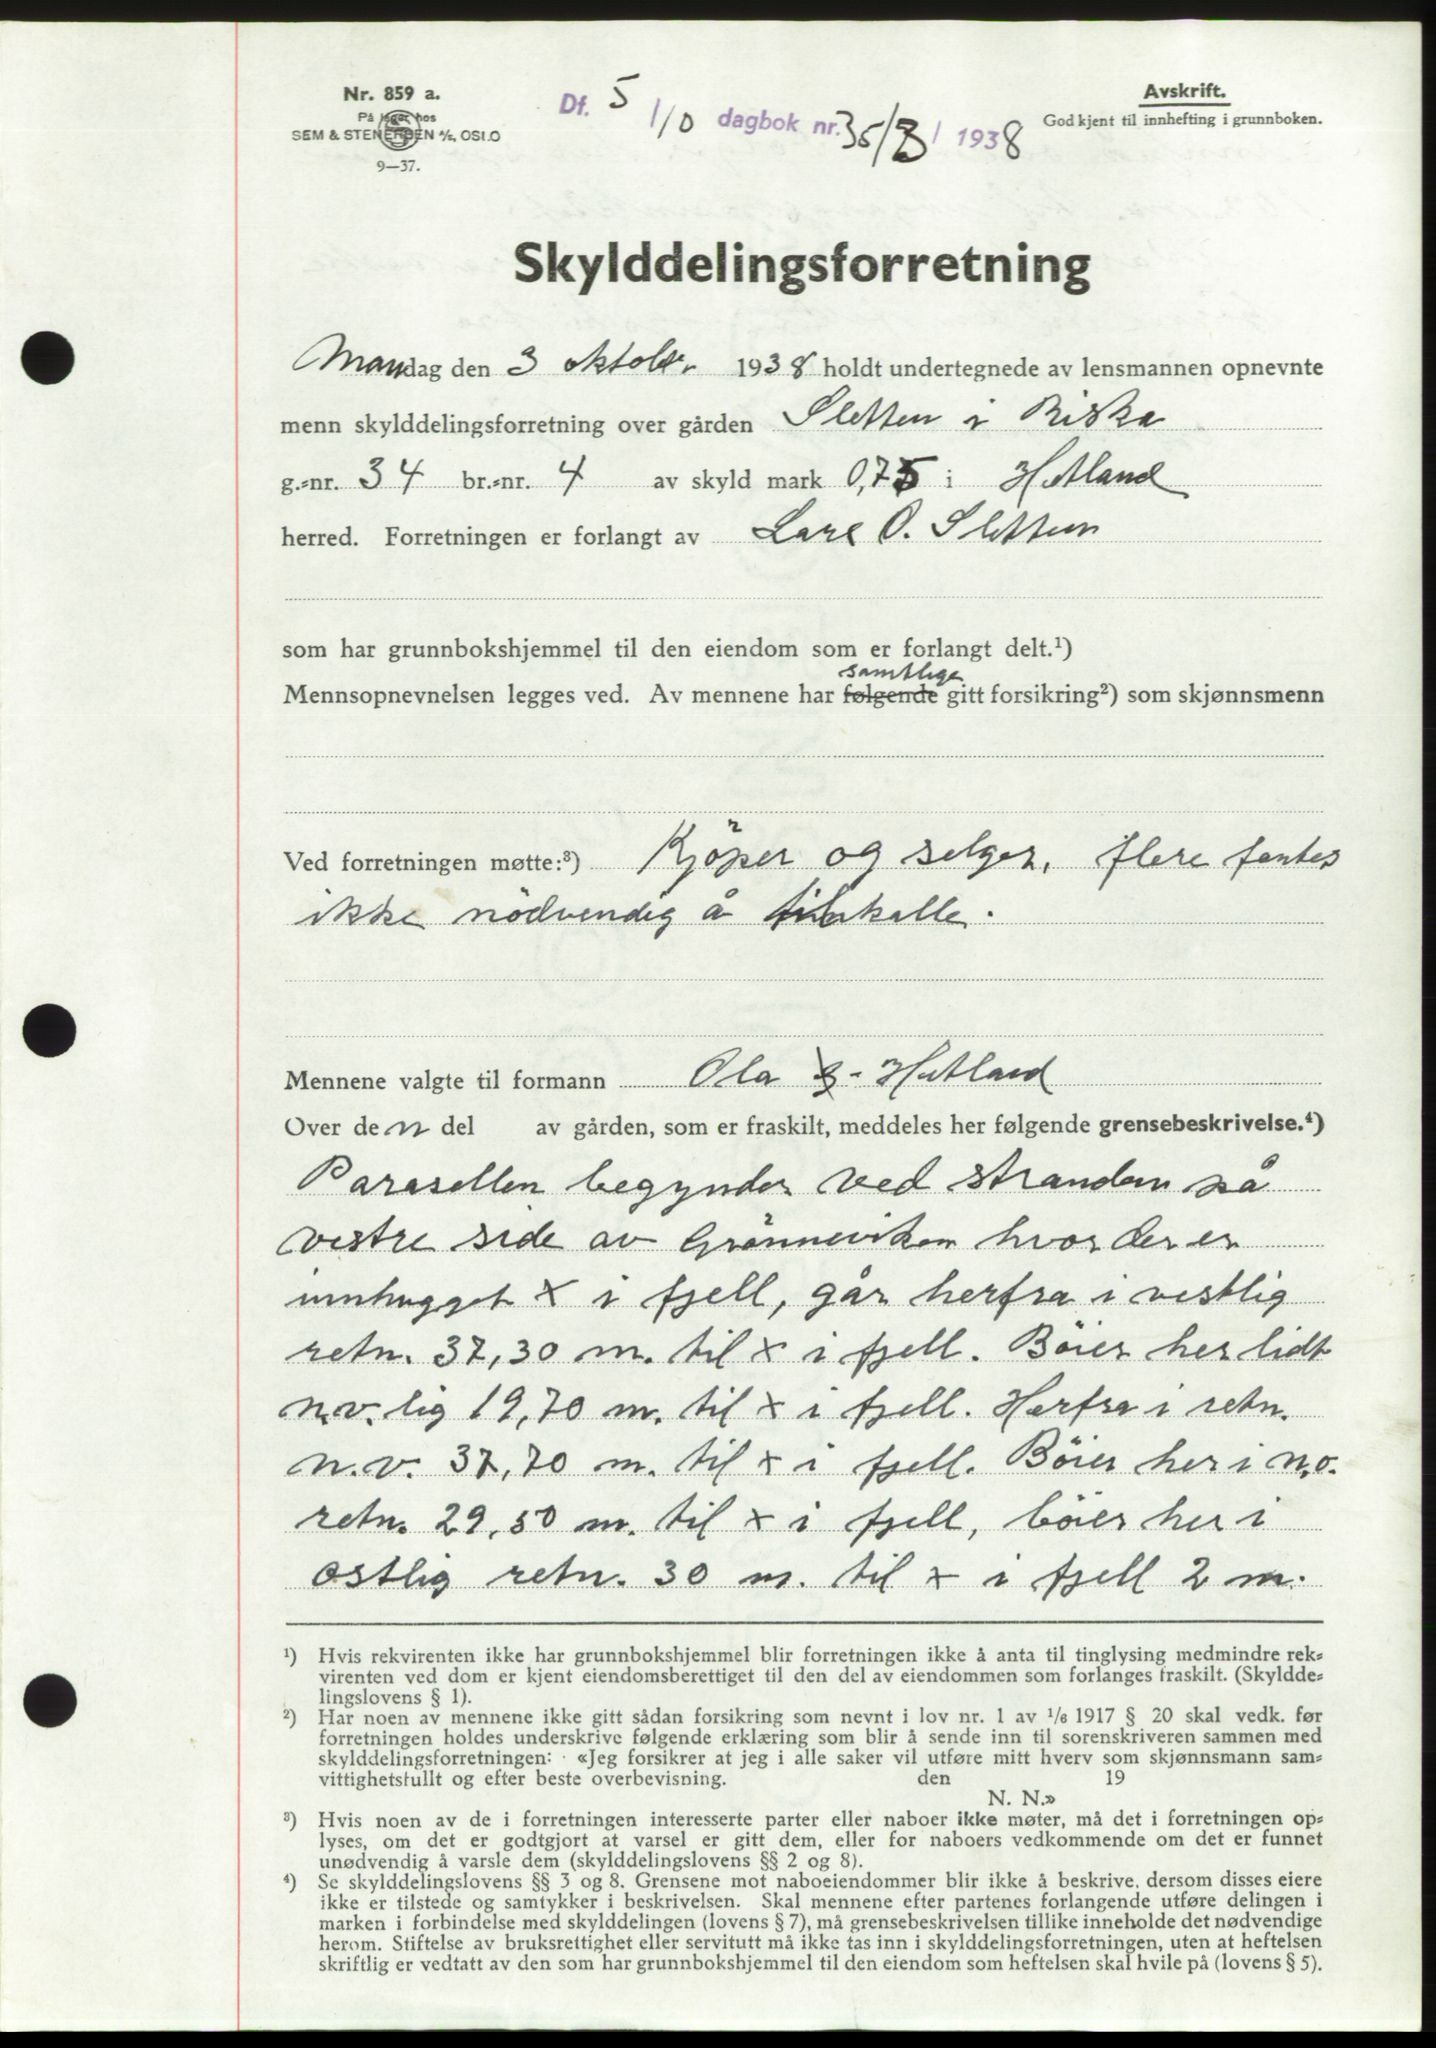 Nr. 859 a.
På lager hos
SEM & STENERSEN A/S, OSLO
9—37.
Df. 5/10 dagbok nr. 35/3 1938
Avskrift.
Godkjent til innhefting i grunnboken.
Skylddelingsforretning
Mandag den 3 oktober 1938 holdt undertegnede av lensmannen opnevnte
menn skylddelingsforretning over gården Sletten i Riska
g.=nr. 34 br.=nr. 4 av skyld mark 0,75 i Hetland
herred. Forretningen er forlangt av Lars O. Sletten
som har grunnbokshjemmel til den eiendom som er forlangt delt.¹)
samtlige
Mennsopnevnelsen legges ved. Av mennene har følgende gitt forsikring²) som skjønnsmenn
Ved forretningen møtte:³) Kjöper og selger, flere fantes
ikke nödvendig å tilkalle.
Mennene valgte til formann Ola Hetland
Over den del av gården, som er fraskilt, meddeles her følgende grensebeskrivelse.⁴)
Parasellen begynder ved stranden på
vestre side av Grönneviken hvor der er
innhugget x i fjell, går herfra i vestlig
retn. 37,30 m. til x i fjell. Böier her lidt
n.v. lig 19,70 m. til x i fjell. Herfra i retn.
n.v. 37,70 m. til x i fjell. Böier her i n.o.
retn. 29,50 m. til x i fjell, böier her i
ostlig retn. 30 m. til x i fjell 2 m.
¹) Hvis rekvirenten ikke har grunnbokshjemmel blir forretningen ikke å anta til tinglysing medmindre rek=
virenten ved dom er kjent eiendomsberettiget til den del av eiendommen som forlanges fraskilt. (Skyldde=
lingslovens § 1).
²) Har noen av mennene ikke gitt sådan forsikring som nevnt i lov nr. 1 av 1/6 1917 § 20 skal vedk. før
forretningen holdes underskrive følgende erklæring som blir å sende inn til sorenskriveren sammen med
skylddelingsforretningen: «Jeg forsikrer at jeg i alle saker vil utføre mitt hverv som skjønnsmann sam=
vittighetsfullt og efter beste overbevisning. den 19
N. N.»
³) Hvis noen av de i forretningen interesserte parter eller naboer ikke møter, må det i forretningen op=
lyses, om det er godtgjort at varsel er gitt dem, eller for naboers vedkommende om det er funnet
unødvendig å varsle dem (skylddelingslovens §§ 2 og 8).
⁴) Se skylddelingslovens §§ 3 og 8. Grensene mot naboeiendommer blir ikke å beskrive, dersom disses eiere
ikke er tilstede og samtykker i beskrivelsen. Skal mennene efter partenes forlangende utføre delingen i
marken i forbindelse med skylddelingen (lovens § 7), må grensebeskrivelsen tillike inneholde det nødvendige
herom. Stiftelse av bruksrettighet eller servitutt må ikke tas inn i skylddelingsforretningen, uten at heftelsen
skriftlig er vedtatt av den som har grunnbokshjemmel til den eiendom som heftelsen skal hvile på (lovens § 5).